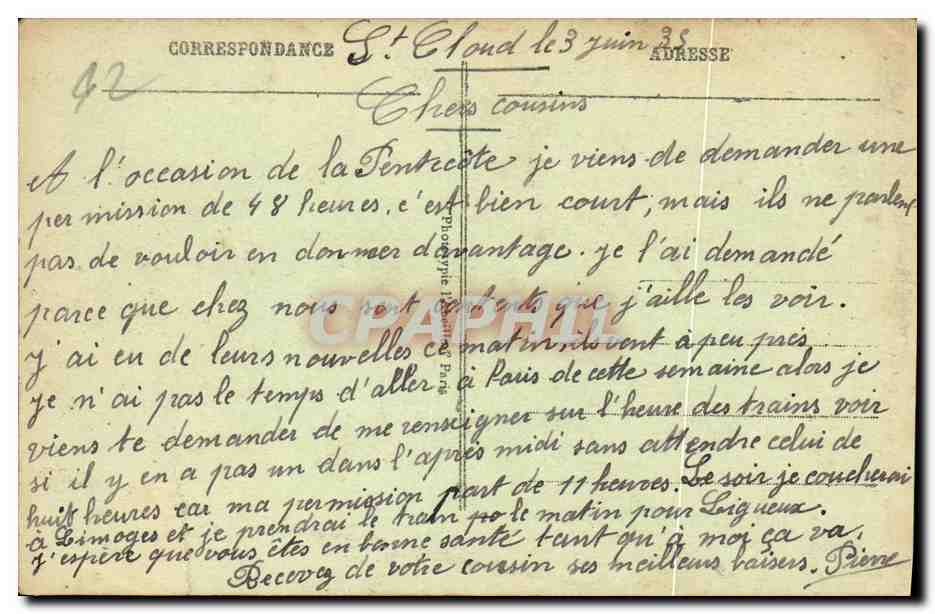 CORRESPONDANCE St Cloud le 3 juin 35 ADRESSE
42
Chers cousins
A l'occasion de la Pentecôte je viens de demander une
permission de 48 heures, c'est bien court, mais ils ne parlent
pas de vouloir en donner davantage. Je l'ai demandé
parce que chez nous sont contents que j'aille les voir.
J'ai eu de leurs nouvelles ce matin, ils vont à peu près
Je n'ai pas le temps d'aller à Paris de cette semaine alors je
viens te demander de me renseigner sur l'heure des trains voir
si il y en a pas un dans l'après midi sans attendre celui de
huit heures car ma permission part de 11 heures. Le soir je coucherai
à Limoges et je prendrai le train le matin pour Ligueux.
J'espère que vous êtes en bonne santé tant qu'à moi ça va.
Recevez de votre cousin ses meilleurs baisers. Pierre
Phototypie Paris
CPAPHIL